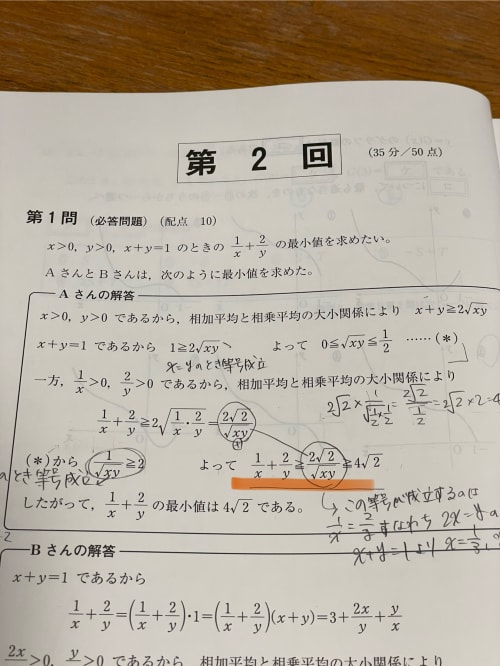 第 2 回
(35分/50点)
第1問 (必答問題) (配点 10)
x>0, y>0, x+y=1 のときの 1/x+2/y の最小値を求めたい。
AさんとBさんは,次のように最小値を求めた。
Aさんの解答
x>0, y>0 であるから,相加平均と相乗平均の大小関係により x+y≧2√xy
x+y=1 であるから 1≧2√xy よって 0≦√xy≦1/2 ……(*)
x=yのとき等号成立
一方, 1/x>0, 2/y>0 であるから,相加平均と相乗平均の大小関係により
1/x+2/y≧2√(1/x・2/y)=2√2/√xy
(*)から 1/√xy≧2 よって 1/x+2/y≧2√2/√xy≧4√2
とき等号成立
この等号が成立するのは
したがって, 1/x+2/y の最小値は 4√2 である。
1/x=2/y すなわち 2x=y
x+y=1より x=1/3,
Bさんの解答
x+y=1 であるから
1/x+2/y=(1/x+2/y)・1=(1/x+2/y)(x+y)=3+2x/y+y/x
2x/y>0, y/x>0 であるから,相加平均と相乗平均の大小関係により